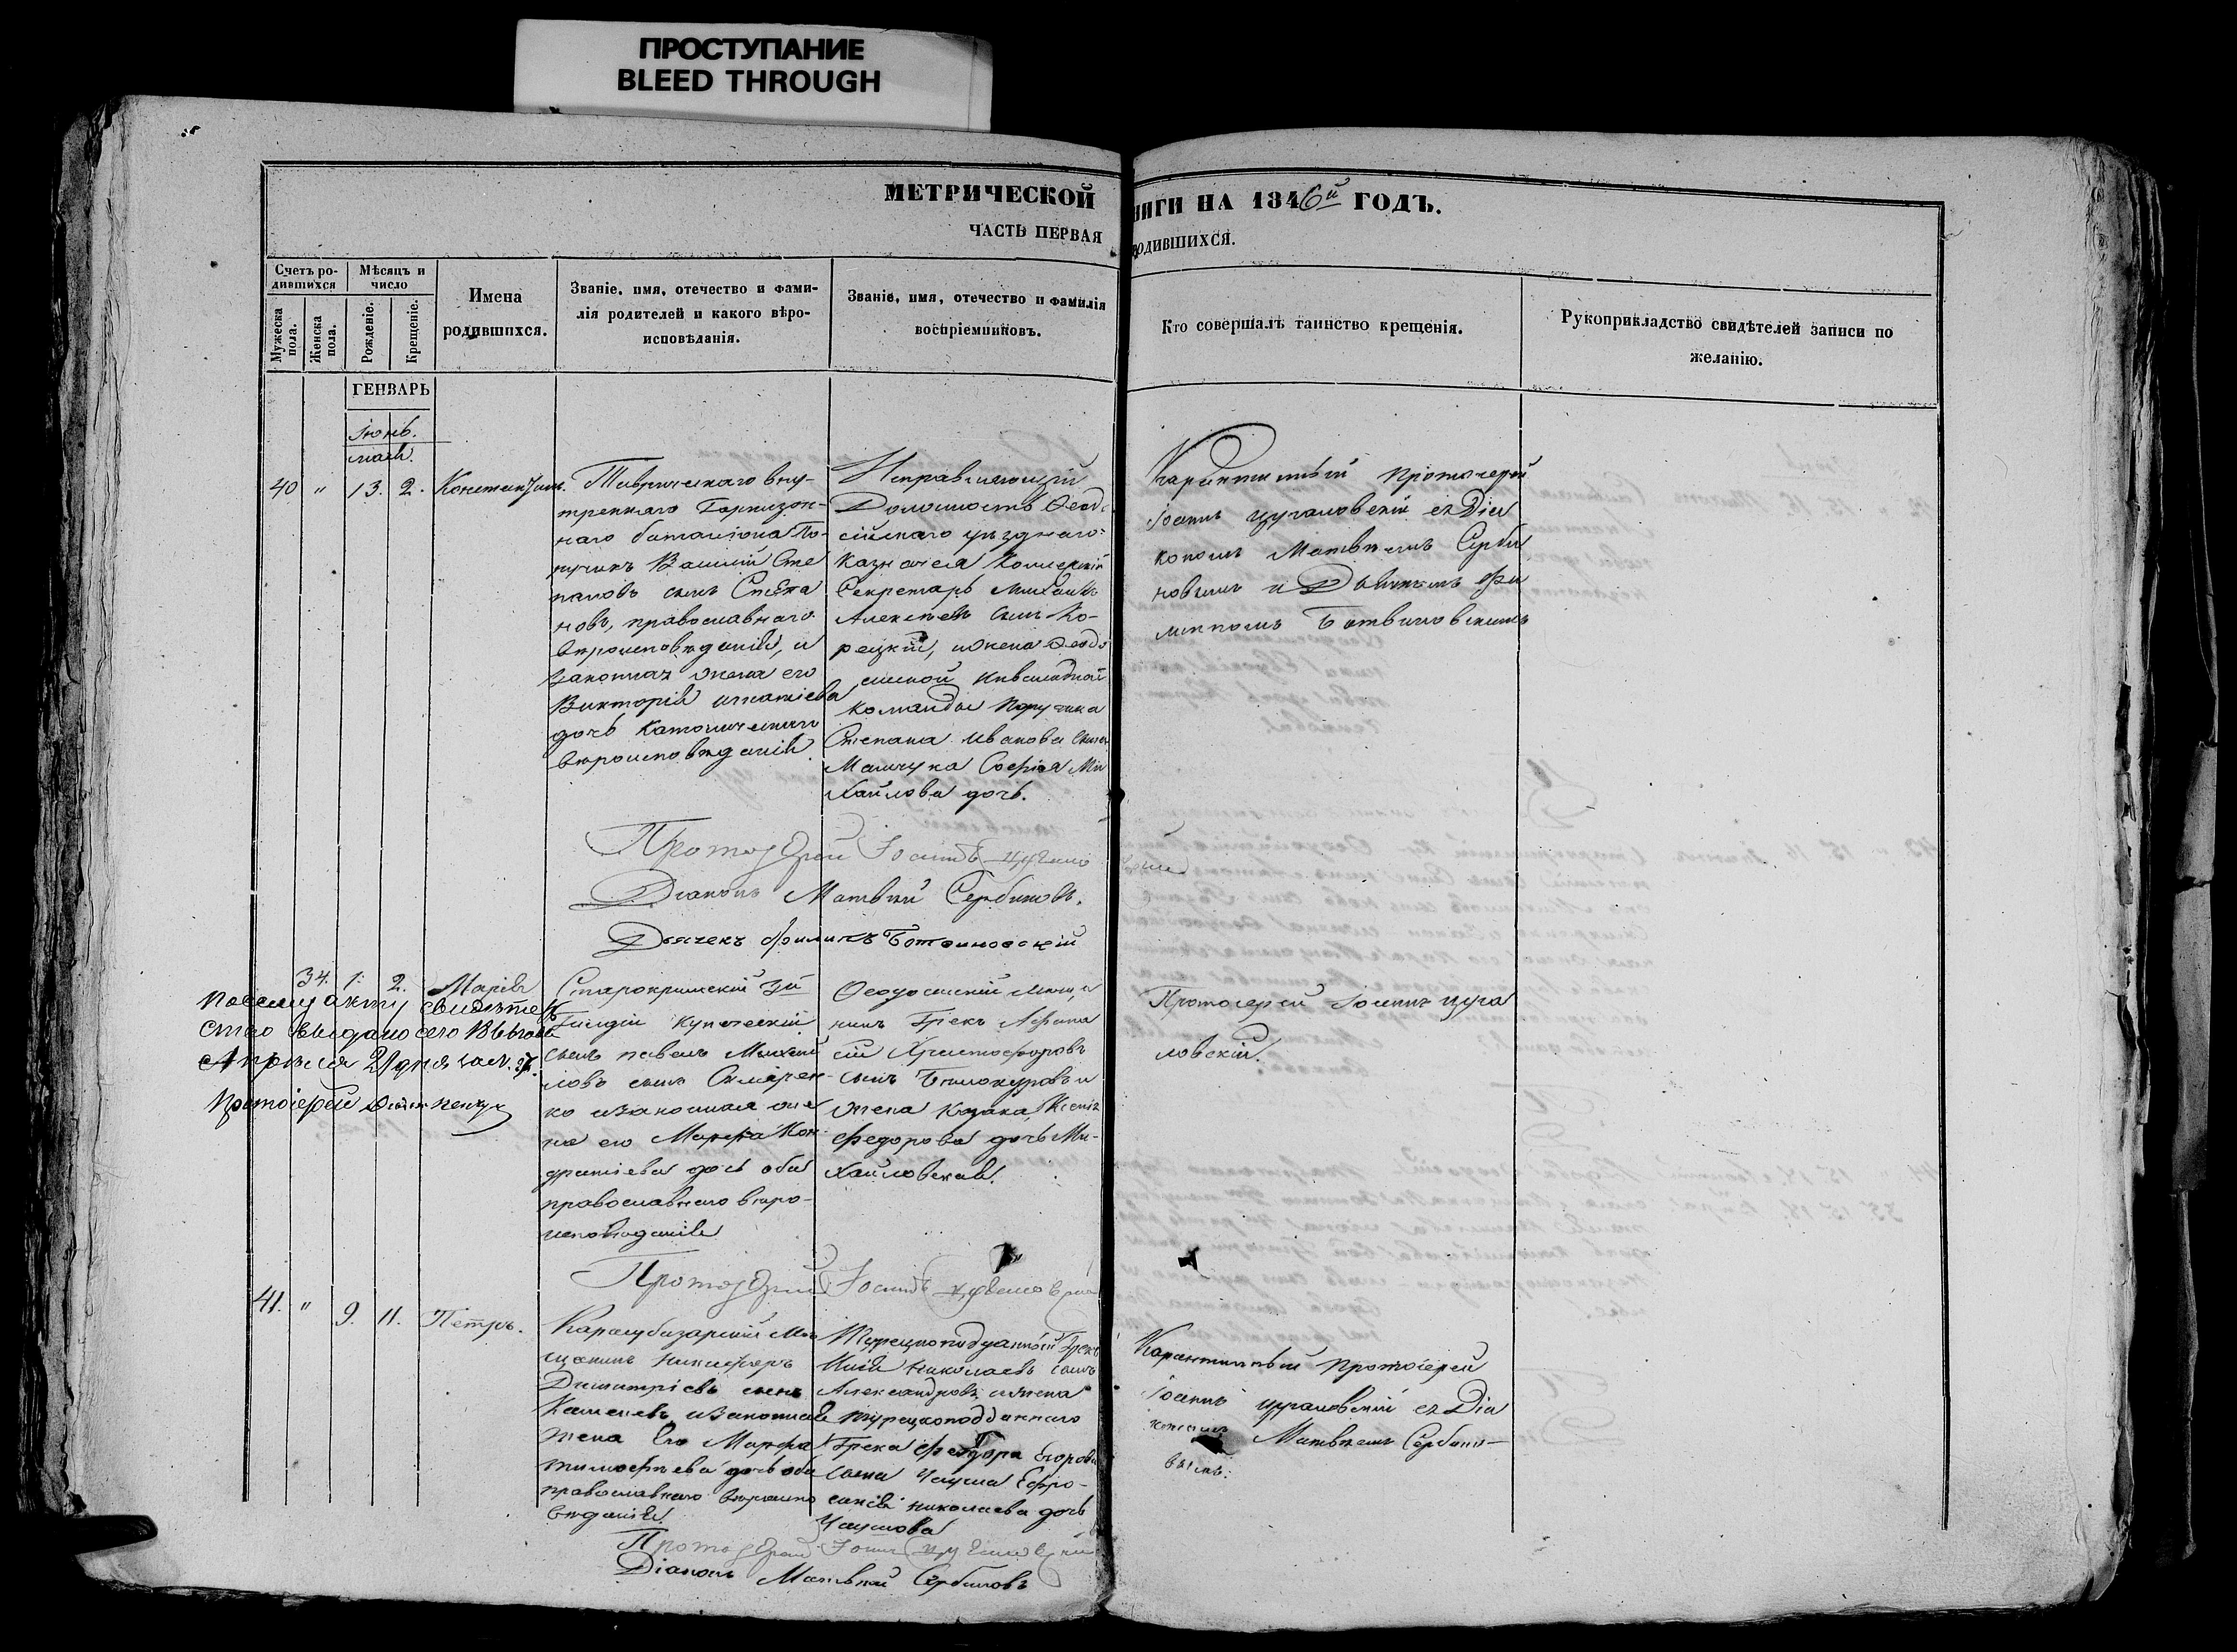 ПРОСТУПАНИЕ
BLEED THROUGH
МЕТРИЧЕСКОЙ
НИГИ НА 1846й ГОДЪ.
ЧАСТЬ ПЕРВАЯ
РОДИВШИХСЯ.
Счетъ ро-
дившихся
Мѣсяцъ и
число
Мужеска
пола.
Женска
пола.
Рожденіе.
Крещеніе.
Имена
родившихся.
Званіе, имя, отечество и фами-
лія родителей и какого вѣро-
исповѣданія.
Званіе, имя, отечество и фамилія
воспріемниковъ.
Кто совершалъ таинство крещенія.
Рукоприкладство свидѣтелей записи по
желанію.
ГЕНВАРЬ
Іюнь.
маія.
40 " 13. 2. Константинъ.
Таврическаго вну-
тренняго Гарнизон-
наго баталіона По-
ручикъ Василій Сте
пановъ сынъ Степа
новъ, православнаго
вѣроисповѣданія, и
законная жена его
Викторія Игнатіева
дочь Католическаго
вѣроисповѣданія.
Исправляющій
Должность Ѳеодо
сійскаго уѣзднаго
Казначея Коллежскій
Секретарь Михаилъ
Алексѣевъ сынъ Ко-
рецкій, и жена Ѳеодо
сійской Инвалидной
команды Поручика
Степана Иванова сына
Софія Ми
хайлова дочь.
Карантинный Протоіерей
Іоаннъ Цугаловскій съ Діа
кономъ Матвѣемъ Серби
новымъ и Дьячкомъ Фи
липпомъ Ботвиновскимъ
Протоіерей Іоаннъ Цугало
вскій
Діаконъ Матвѣй Сербиновъ.
Дьячекъ Филипъ Ботвиновскій
34. 1. 2. Марія
Посему акту свидѣтель
ство выдано сего
Апрѣля 21 дня
Протоіерей
Старокримскій 3й
Гильдіи купеческій
сынъ Павелъ Михай
ловъ сынъ
ко и законная же
на его Марфа Кон
дратіева дочь оба
православнаго вѣро-
исповѣданія
Ѳеодосійскій мѣща
нинъ Грекъ Афана
сій Христофоровъ
сынъ Бѣлокуровъ и
жена Козака Ксенія
Федорова дочь Ми-
хайловская.
Протоіерей Іоаннъ Цуга
ловскій.
Протоіерей Іоаннъ Цугаловскій
41. " 9. 11. Петръ.
Карасубазарскій Мѣ
щанинъ Никифоръ
Димитріевъ сынъ
и законная
жена его Марфа
Тимофѣева дочь оба
православнаго вѣроиспо
вѣданія
Турецкоподданный Грекъ
Николаевъ сынъ
Александровъ и жена
турецкоподданнаго
Грека Феодора Егорова
сына Чауша Ефро-
синія Николаева дочь
Чаушова
Карантинный Протоіерей
Іоаннъ Цугаловскій съ Діа
кономъ Матвѣемъ Сербино-
вымъ.
Протоіерей Іоаннъ Цугаловскій
Діаконъ Матвѣй Сербиновъ